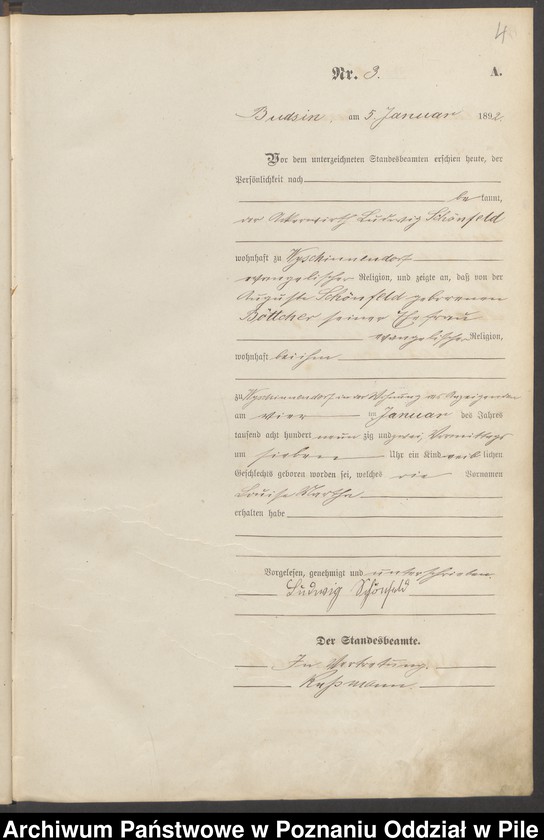 4
Nr. 3. A.
Budsin, am 5. Januar 1892.
Vor dem unterzeichneten Standesbeamten erschien heute, der
Persönlichkeit nach
be kannt,
der Ackerwirth Ludwig Schönfeld
wohnhaft zu
evangelischer Religion, und zeigte an, daß von der
Auguste Schönfeld geborenen
Böttcher seiner Ehefrau
evangelischer Religion,
wohnhaft bei ihm
zu in der Wohnung des Anzeigenden
am vier ten Januar des Jahres
tausend acht hundert neun zig und zwei, Vormittags
um sieben Uhr ein Kind weib lichen
Geschlechts geboren worden sei, welches die Vornamen
Louise Martha
erhalten habe
Vorgelesen, genehmigt und unterschrieben.
Ludwig Schönfeld
Der Standesbeamte.
In Vertretung.
Archiwum Państwowe w Poznaniu Oddział w Pile